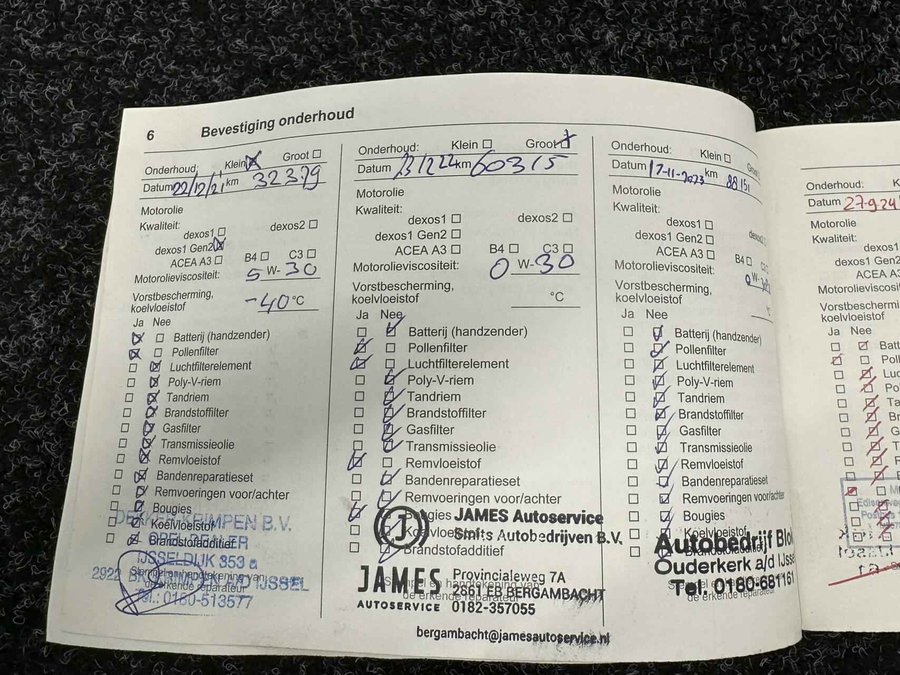 6 Bevestiging onderhoud
Onderhoud: Klein Groot
Datum 22/12/21 km 32379
Motorolie
Kwaliteit:
dexos1 dexos2
dexos1 Gen2
ACEA A3 B4 C3
Motorolieviscositeit: 5 W-30
Vorstbescherming,
koelvloeistof -40 °C
Ja Nee
Batterij (handzender)
Pollenfilter
Luchtfilterelement
Poly-V-riem
Tandriem
Brandstoffilter
Gasfilter
Transmissieolie
Remvloeistof
Bandenreparatieset
Remvoeringen voor/achter
Bougies
Koelvloeistof
Brandstofadditief
KRIMPEN B.V.
OPEL DEALER
IJSSELDIJK 353 a
Stempel en handtekening van
de erkende reparateur
2922 IJSSEL
Tel.: 0180-513577
Onderhoud: Klein Groot
Datum 13/12 22 km 60315
Motorolie
Kwaliteit:
dexos1 dexos2
dexos1 Gen2
ACEA A3 B4 C3
Motorolieviscositeit: 0 W-30
Vorstbescherming,
koelvloeistof °C
Ja Nee
Batterij (handzender)
Pollenfilter
Luchtfilterelement
Poly-V-riem
Tandriem
Brandstoffilter
Gasfilter
Transmissieolie
Remvloeistof
Bandenreparatieset
Remvoeringen voor/achter
Bougies
Koelvloeistof
Brandstofadditief
J JAMES Autoservice
Smits Autobedrijven B.V.
JAMES
AUTOSERVICE
Provincialeweg 7A
2861 EB BERGAMBACHT
0182-357055
Stempel en handtekening van
de erkende reparateur
bergambacht@jamesautoservice.nl
Onderhoud: Klein Groot
Datum 17-11-2023 km 88151
Motorolie
Kwaliteit:
dexos1 dexos2
dexos1 Gen2
ACEA A3 B4 C3
Motorolieviscositeit: 0 W-
Vorstbescherming,
koelvloeistof °C
Ja Nee
Batterij (handzender)
Pollenfilter
Luchtfilterelement
Poly-V-riem
Tandriem
Brandstoffilter
Gasfilter
Transmissieolie
Remvloeistof
Bandenreparatieset
Remvoeringen voor/achter
Bougies
Koelvloeistof
Brandstofadditief
Autobedrijf Blo
Ouderkerk a/d IJsse
Tel: 0180-681161
Stempel en handtekening van
de erkende reparateur
Onderhoud: K
Datum 27-9-24
Motorolie
Kwaliteit:
dexos1
dexos1 Gen
ACEA A3
Motorolieviscosite
Vorstbeschermi
koelvloeistof
Ja Nee
Batt
Poll
Luc
Po
Ta
Br
G
T